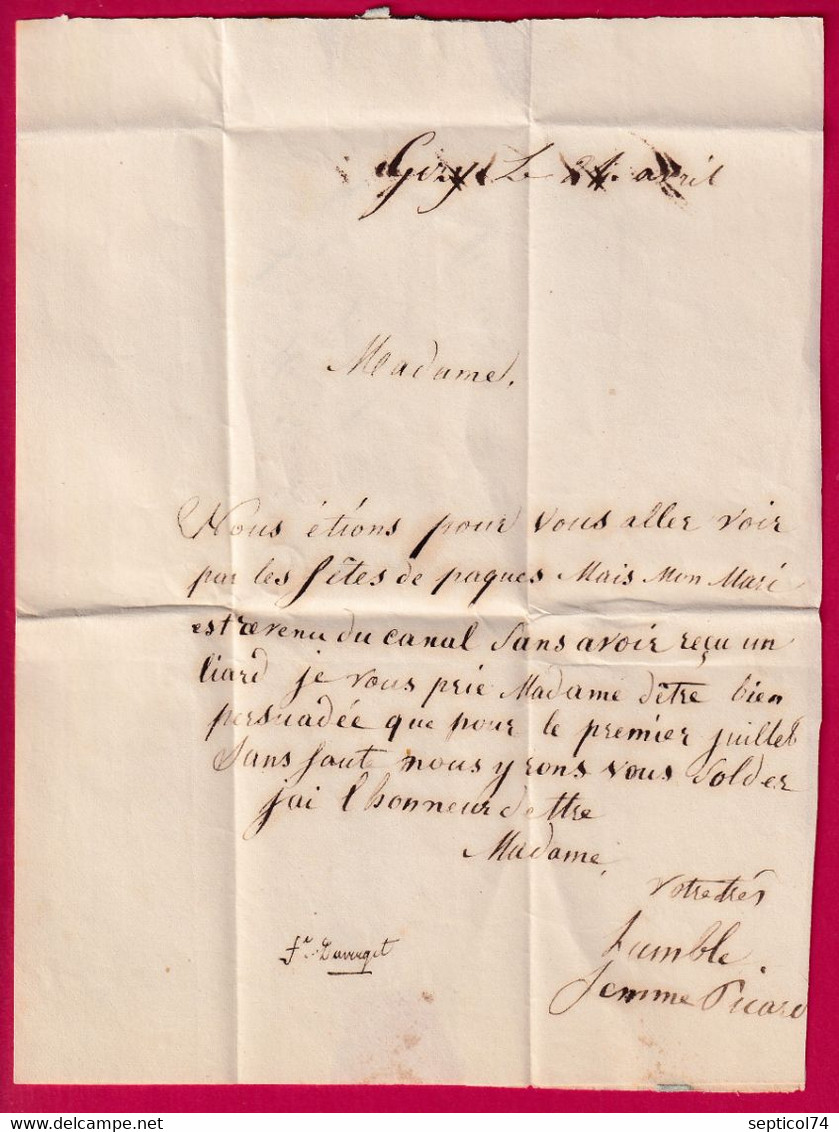 Gizy Le 21 avril
Madame,
Nous étions pour vous aller voir
par les fêtes de paques Mais Mon Mari
est revenu du canal Sans avoir reçu un
liard je vous prie Madame dêtre bien
persuadée que pour le premier juillet
Sans faute nous yrons vous Solder
jai lhonneur dettre
Madame,
votre très
humble
femme Picard
septicol74
Delcampe.net